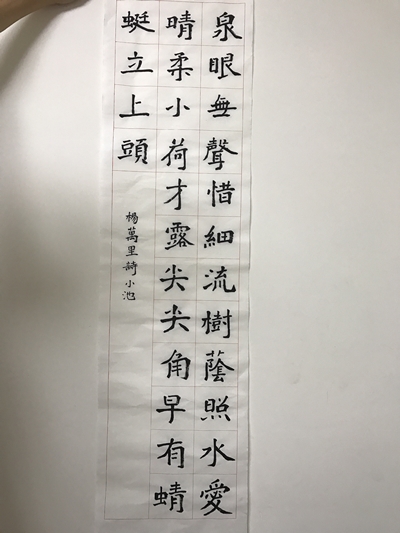 泉眼無聲惜細流樹蔭照水愛
晴柔小荷才露尖尖角早有蜻
蜓立上頭
楊萬里詩小池